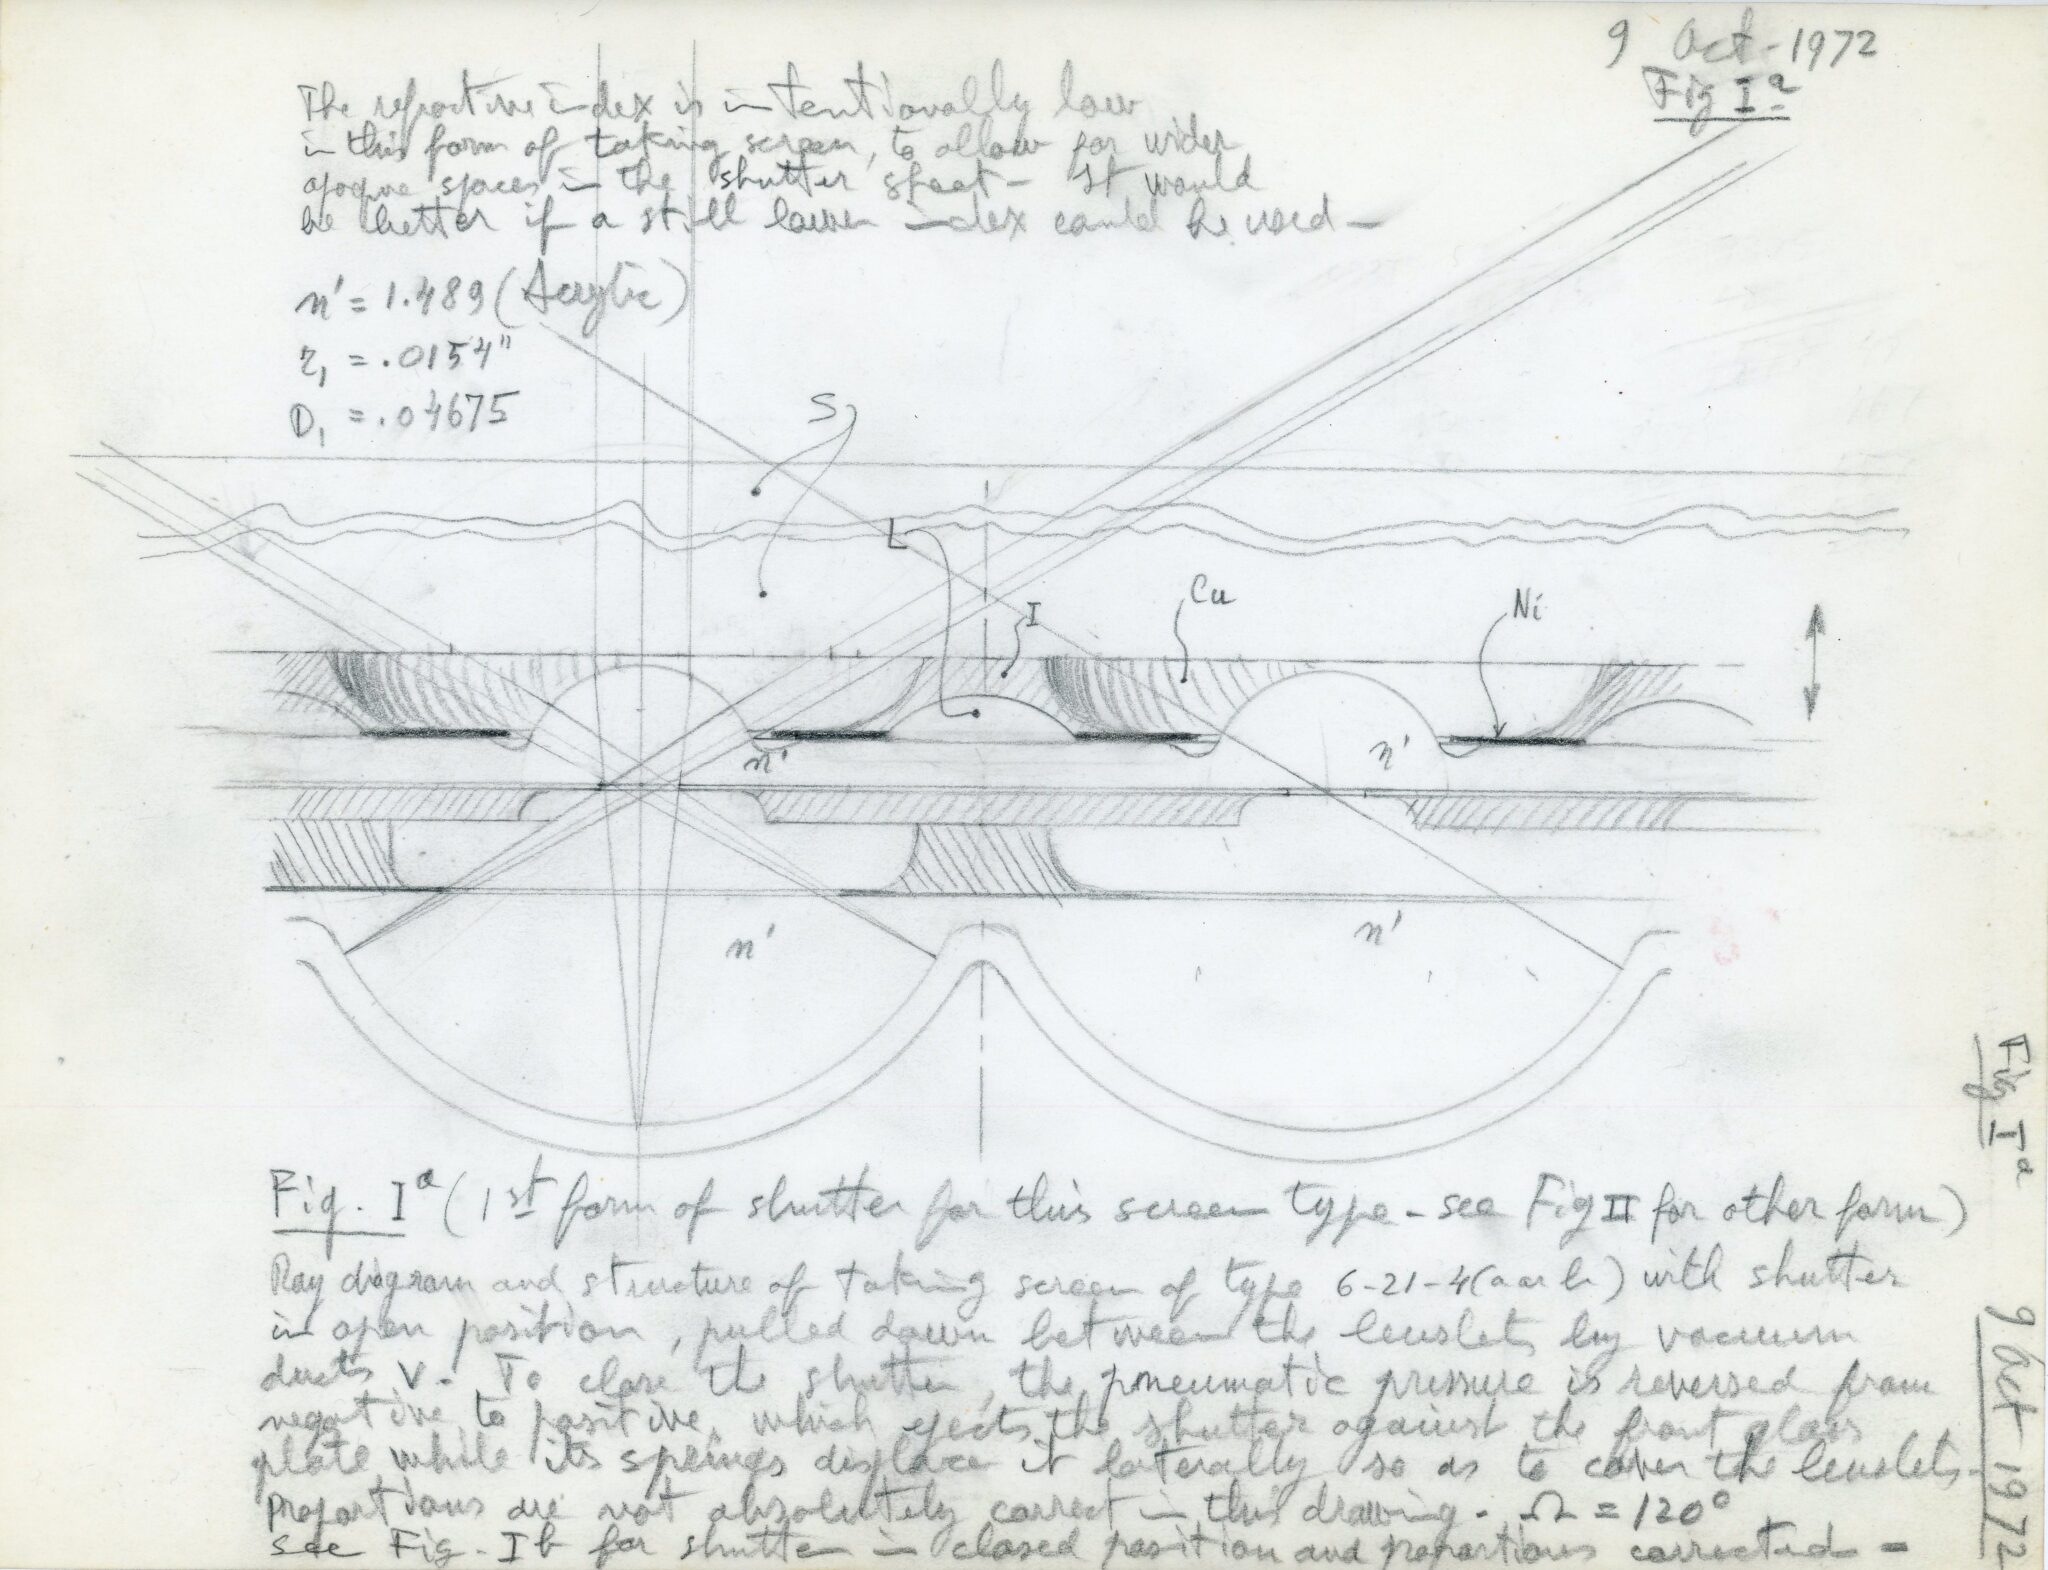 9 Oct - 1972
Fig I a
The refractive index is intentionally low
in this form of taking screen, to allow for wider
opaque spaces in the shutter sheet - It would
be better if a still lower index could be used -
n' = 1.489 (Acrylic)
r₁ = .0154"
D₁ = .04675
S
L
I
Cu
Ni
n'
n'
n'
n'
Fig. I a (1st form of shutter for this screen type - see Fig II for other form)
Ray diagram and structure of taking screen of type 6-21-4 (a or b) with shutter
in open position, pulled down between the lenslets by vacuum
ducts V. To close the shutter, the pneumatic pressure is reversed from
negative to positive, which ejects the shutter against the front glass
plate while its springs displace it laterally so as to cover the lenslets -
Proportions are not absolutely correct in this drawing. Ω = 120°
see Fig. I b for shutter in closed position and proportions corrected -
Fig I a
9 Oct 1972